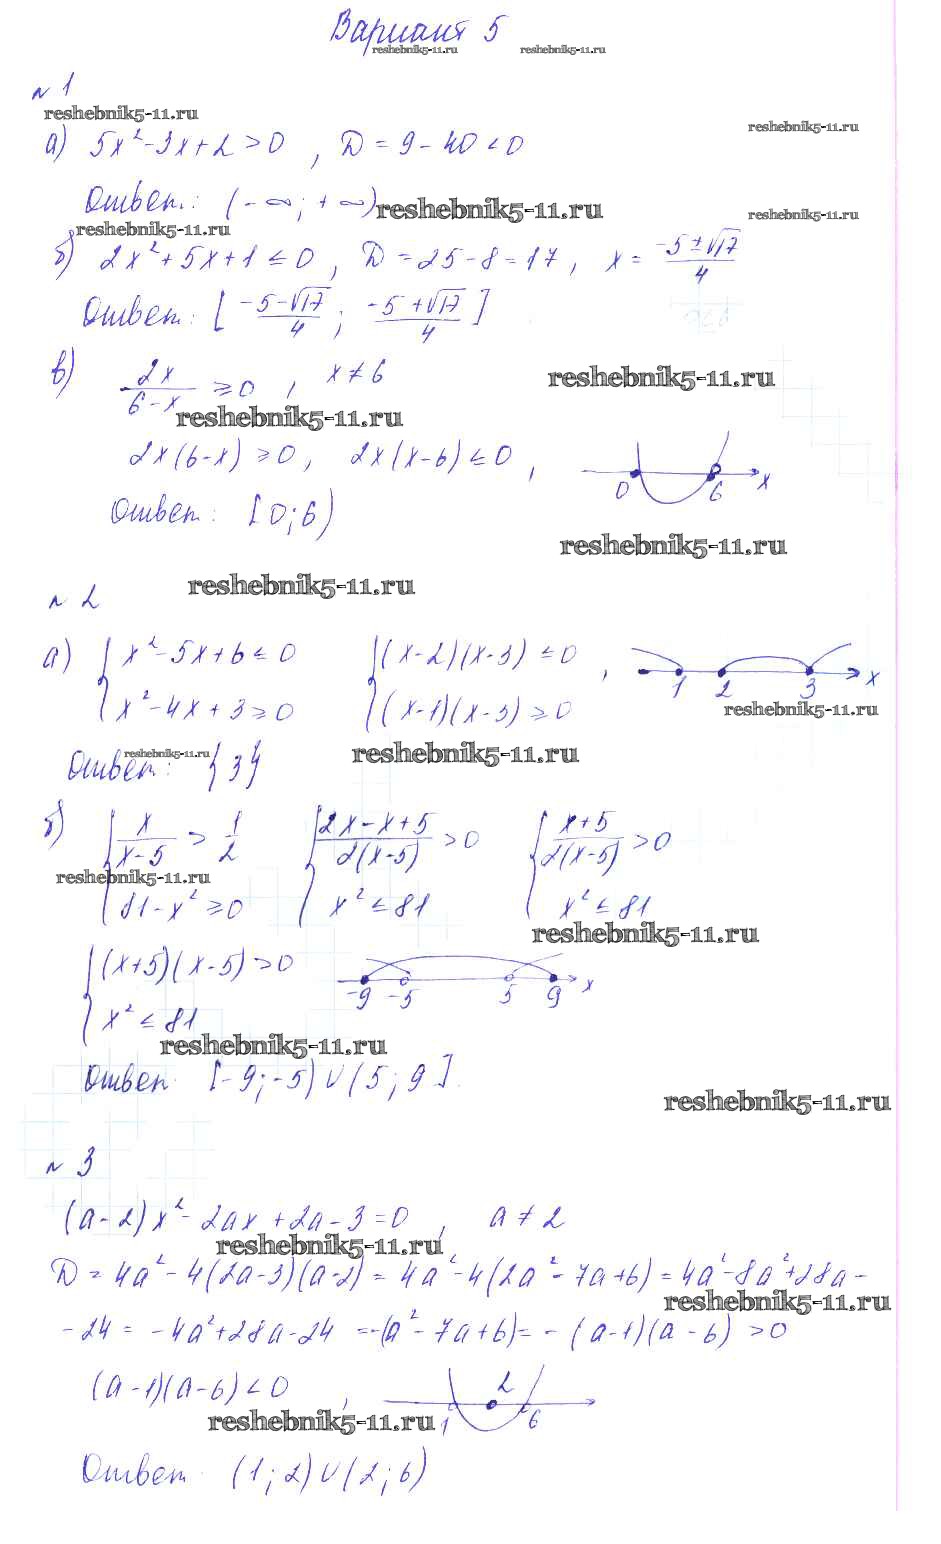 Вариант 5
reshebnik5-11.ru reshebnik5-11.ru
№ 1
reshebnik5-11.ru
reshebnik5-11.ru
а) 5x² - 3x + 2 > 0 , D = 9 - 40 < 0
Ответ: (-∞; +∞) reshebnik5-11.ru reshebnik5-11.ru
reshebnik5-11.ru
б) 2x² + 5x + 1 ≤ 0 , D = 25 - 8 = 17 , x = (-5 ± √17)/4
Ответ: [(-5 - √17)/4 ; (-5 + √17)/4]
в) 2x/(6 - x) ≥ 0 , x ≠ 6
reshebnik5-11.ru
reshebnik5-11.ru
2x(6 - x) ≥ 0 , 2x(x - 6) ≤ 0 ,
0 6 x
Ответ: [0; 6)
reshebnik5-11.ru
reshebnik5-11.ru
№ 2
а) { x² - 5x + 6 ≤ 0 { (x - 2)(x - 3) ≤ 0 ,
x² - 4x + 3 ≥ 0 (x - 1)(x - 3) ≥ 0
1 2 3 x
reshebnik5-11.ru
reshebnik5-11.ru
reshebnik5-11.ru
Ответ: {3}
б) { x/(x - 5) > 1/2 { (2x - x + 5)/(2(x - 5)) > 0 { (x + 5)/(2(x - 5)) > 0
reshebnik5-11.ru
81 - x² ≥ 0 x² ≤ 81 x² ≤ 81
reshebnik5-11.ru
{ (x + 5)(x - 5) > 0
x² ≤ 81
-9 -5 5 9 x
reshebnik5-11.ru
Ответ: [-9; -5) ∪ (5; 9].
reshebnik5-11.ru
№ 3
(a - 2)x² - 2ax + 2a - 3 = 0 , a ≠ 2
reshebnik5-11.ru
D = 4a² - 4(2a - 3)(a - 2) = 4a² - 4(2a² - 7a + 6) = 4a² - 8a² + 28a -
reshebnik5-11.ru
- 24 = -4a² + 28a - 24 = -(a² - 7a + 6) = -(a - 1)(a - 6) > 0
(a - 1)(a - 6) < 0 ,
1 2 6
reshebnik5-11.ru
Ответ: (1; 2) ∪ (2; 6)